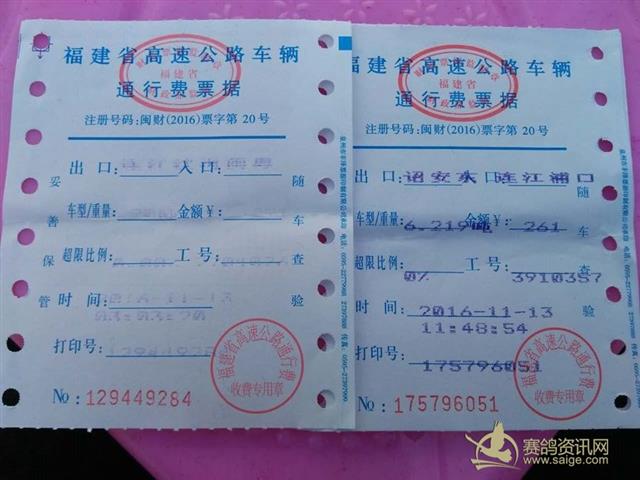 福建省高速公路车辆
通行费票据
注册号码:闽财(2016)票字第 20号
出口: 入口:
车型/重量: 金额¥:
超限比例: 工号:
时间: 2016-11-13
03:03:20
打印号: 129449284
№: 129449284
妥善保管
随车查验
福建省高速公路通行费
收费专用章
福建省高速公路车辆
通行费票据
福建省
注册号码:闽财(2016)票字第 20号
出口: 诏安东 入口: 连江浦口
车型/重量: 6.219吨 金额¥: 261
超限比例: 0% 工号: 3910357
时间: 2016-11-13
11:48:54
打印号: 175796051
№: 175796051
随车查验
福建省高速公路通行费
收费专用章
赛鸽资讯网
www.saige.com